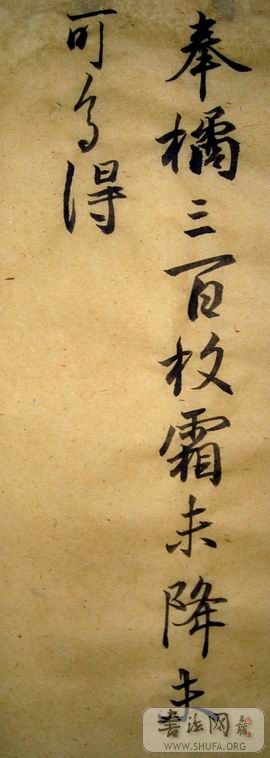 奉橘三百枚霜未降未
可多得
书法网
WWW.SHUFA.ORG